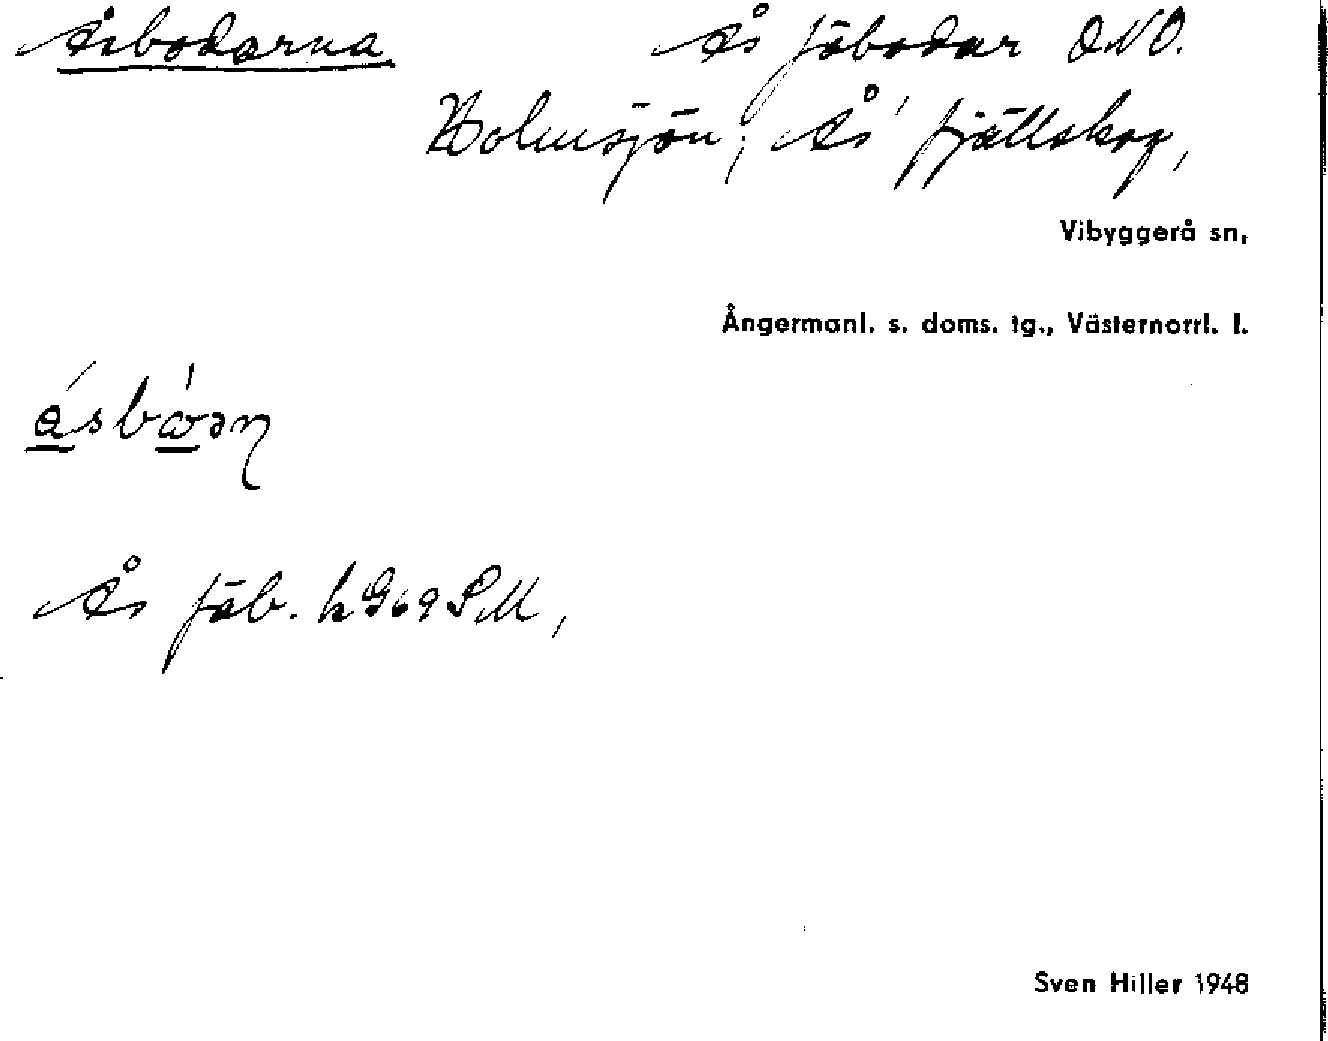 Åsbodarna Ås fäbodar ONO.
Holmsjön; Ås' fjällskog,
Vibyggerå sn,
Ångermanl. s. doms. tg., Västernorrl. l.
Ås fäb. h9G9SM,
Sven Hiller 1948